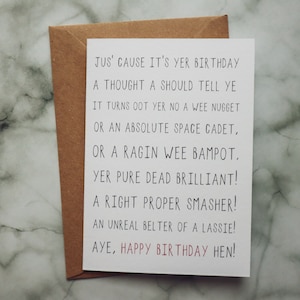 JUS' CAUSE IT'S YER BIRTHDAY
A THOUGHT A SHOULD TELL YE
IT TURNS OOT YER NO A WEE NUGGET
OR AN ABSOLUTE SPACE CADET,
OR A RAGIN WEE BAMPOT.
YER PURE DEAD BRILLIANT!
A RIGHT PROPER SMASHER!
AN UNREAL BELTER OF A LASSIE!
AYE, HAPPY BIRTHDAY HEN!